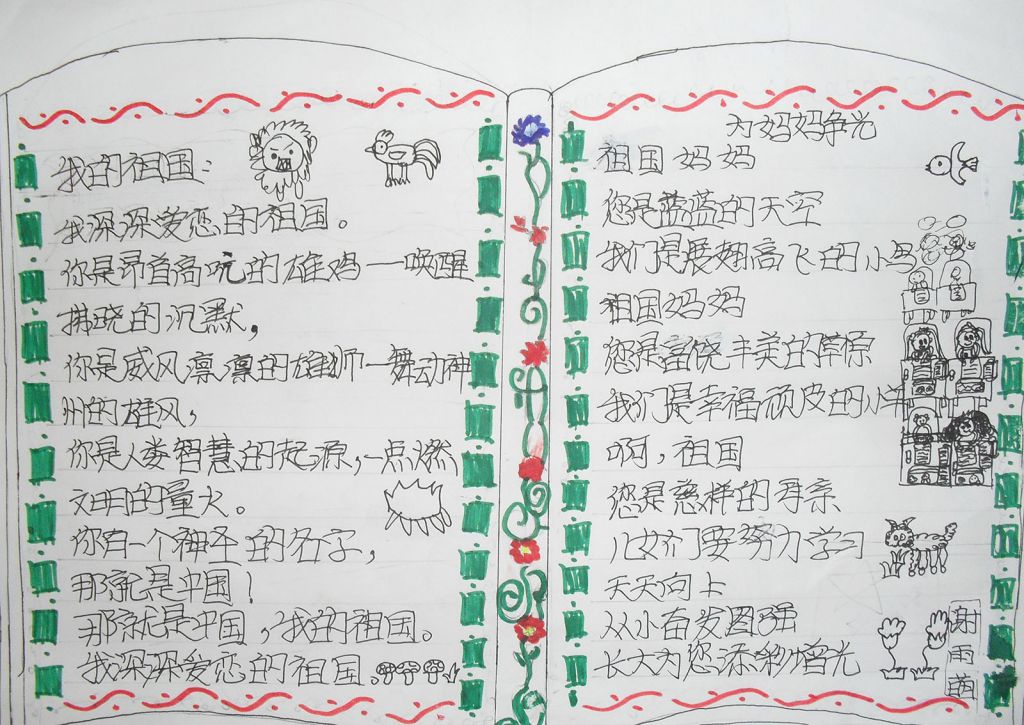 我的祖国:
我深深爱恋的祖国。
你是昂首高吭的雄鸡一唤醒
拂晓的沉默,
你是威风凛凛的雄狮一舞动神
州的雄风,
你是人类智慧的起源,一点燃
文明的量火。
你有一个神圣的名字,
那就是中国!
那就是中国,我的祖国。
我深深爱恋的祖国。
为妈妈争光
祖国妈妈
您是蓝蓝的天空
我们是展翅高飞的小鸟
祖国妈妈
您是富饶丰美的草原
我们是幸福顽皮的小羊
啊,祖国
您是慈祥的母亲
儿女们要努力学习
天天向上
从小奋发图强
长大为您添彩增光
谢雨萌